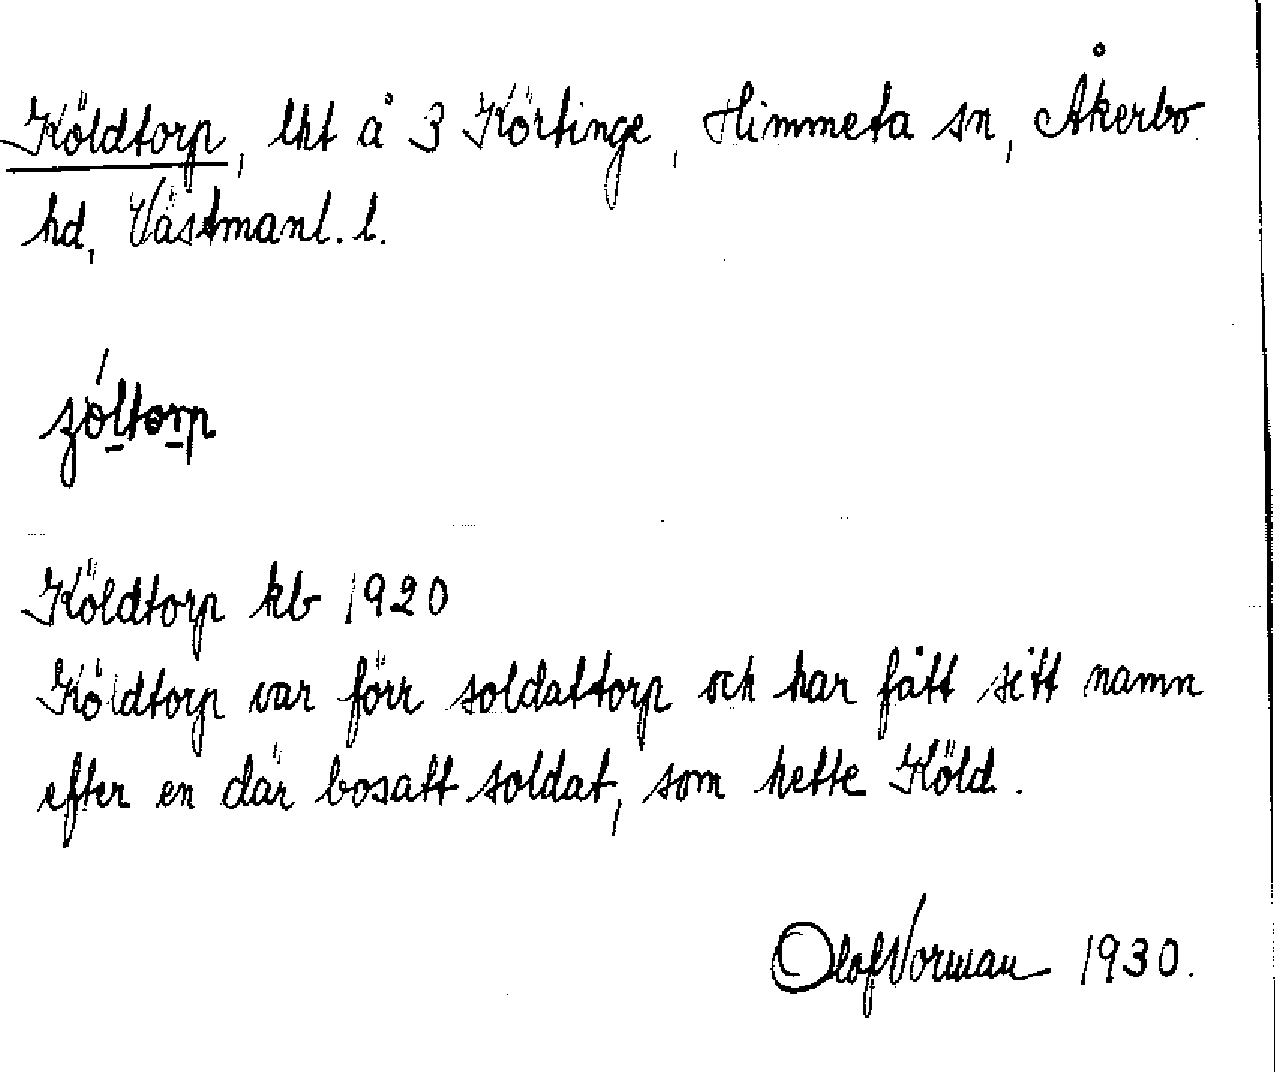 Köldtorp, lht å 3 Körtinge, Himmeta sn, Åkerbo
hd, Västmanl. l.
Köldtorp kb 1920
Köldtorp var förr soldattorp och har fått sitt namn
efter en där bosatt soldat, som hette Köld.
Olof Vorman 1930.